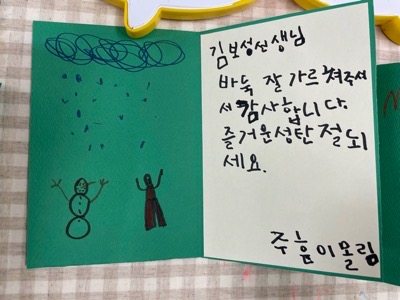 김보성선생님
바둑 잘 가르쳐주셔
서 감사합니다
즐거운성탄절되
세요.
이올림